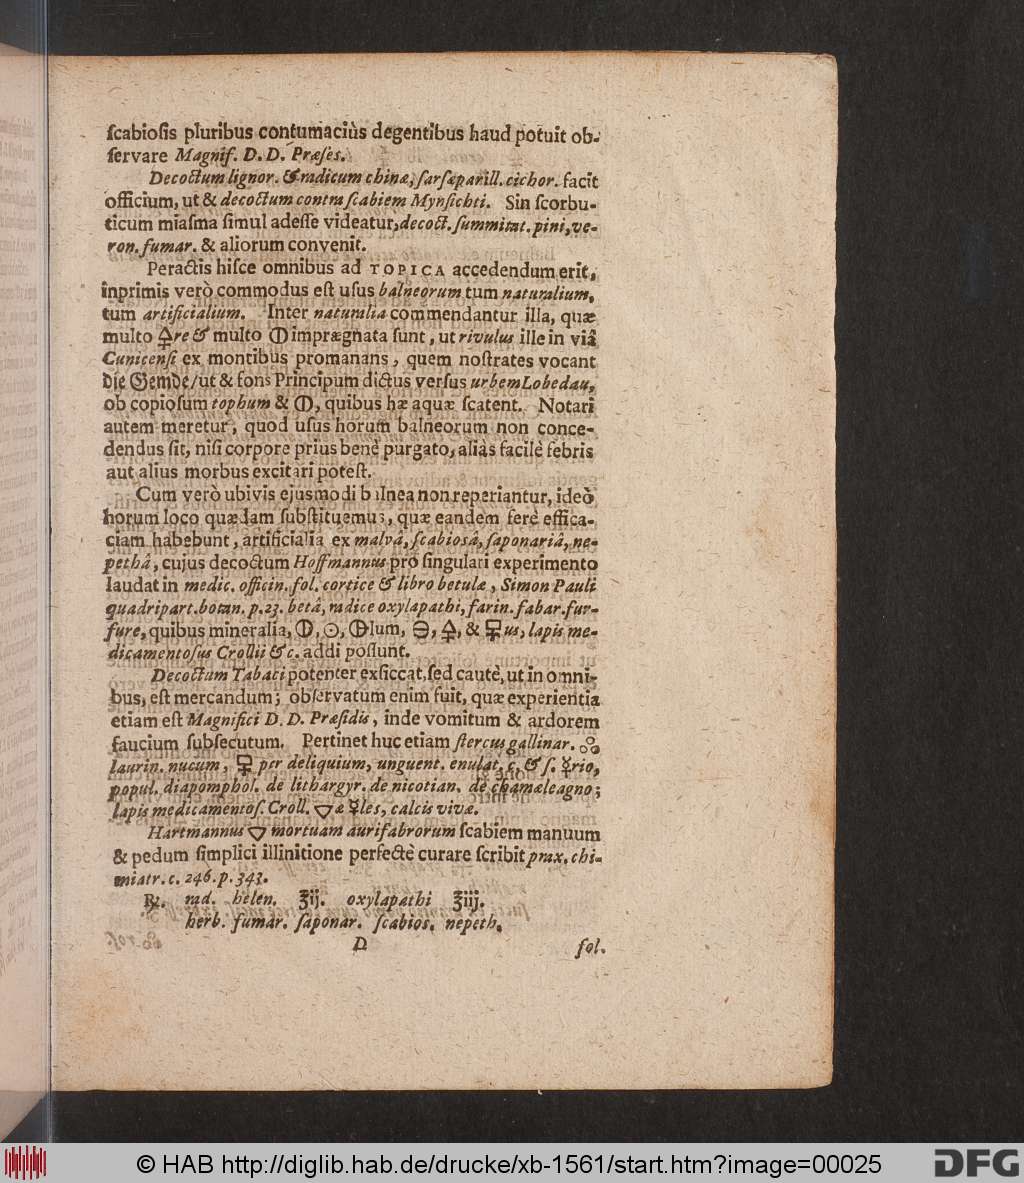 ſcabioſis pluribus contumaciùs degentibus haud potuit ob-
ſervare Magnif. D. D. Præſes.
Decoctum lignor. & radicum chinæ, ſarſaparill. cichor. facit
officium, ut & decoctum contra ſcabiem Mynſichti. Sin ſcorbu-
ticum miaſma ſimul adeſſe videatur, decoct. ſummitat. pini, ve-
ron. fumar. & aliorum convenit.
Peractis hiſce omnibus ad TOPICA accedendum erit,
inprimis verò commodus eſt uſus balneorum tum naturalium,
tum artificialium. Inter naturalia commendantur illa, quæ
multo 🜍re & multo 🜕 imprægnata ſunt, ut rivulus ille in viâ
Cunicenſi ex montibus promanans, quem noſtrates vocant
die Gemde/ ut & fons Principum dictus verſus urbem Lobedau,
ob copioſum tophum & 🜕, quibus hæ aquæ ſcatent. Notari
autem meretur, quod uſus horum balneorum non conce-
dendus ſit, niſi corpore prius benè purgato, aliàs facilè febris
aut alius morbus excitari poteſt.
Cum verò ubivis ejusmodi balnea non reperiantur, ideò
horum loco quædam ſubſtituemus, quæ eandem ferè effica-
ciam habebunt, artificialia ex malvâ, ſcabioſâ, ſaponariâ, ne-
pethâ, cujus decoctum Hoffmannus pro ſingulari experimento
laudat in medic. officin. fol. cortice & libro betulæ, Simon Pauli
quadripart. botan. p. 23. betâ, radice oxylapathi, farin. fabar. fur-
fure, quibus mineralia, 🜕, ☉, 🜨lum, 🜔, 🜍, & 🜿us, lapis me-
dicamentoſus Crollii &c. addi poſſunt.
Decoctum Tabaci potenter exſiccat, ſed cautè, ut in omni-
bus, eſt mercandum; obſervatum enim fuit, quæ experientia
etiam eſt Magnifici D. D. Præſidis, inde vomitum & ardorem
faucium ſubſecutum. Pertinet huc etiam ſtercus gallinar. 🝆
laurin. nucum, 🜿 per deliquium, unguent. enulat. c. & ſ. ☿rio,
popul. diapomphol. de lithargyr. de nicotian. de chamæleagno;
lapis medicamentoſ. Croll. 🜄æ ☿les, calcis vivæ.
Hartmannus 🜄 mortuam aurifabrorum ſcabiem manuum
& pedum ſimplici illinitione perfectè curare ſcribit prax. chi-
miatr. c. 246. p. 343.
℞. rad. helen. ʒij. oxylapathi ʒiij.
herb. fumar. ſaponar. ſcabios. nepeth.
D
fol.
© HAB http://diglib.hab.de/drucke/xb-1561/start.htm?image=00025
DFG